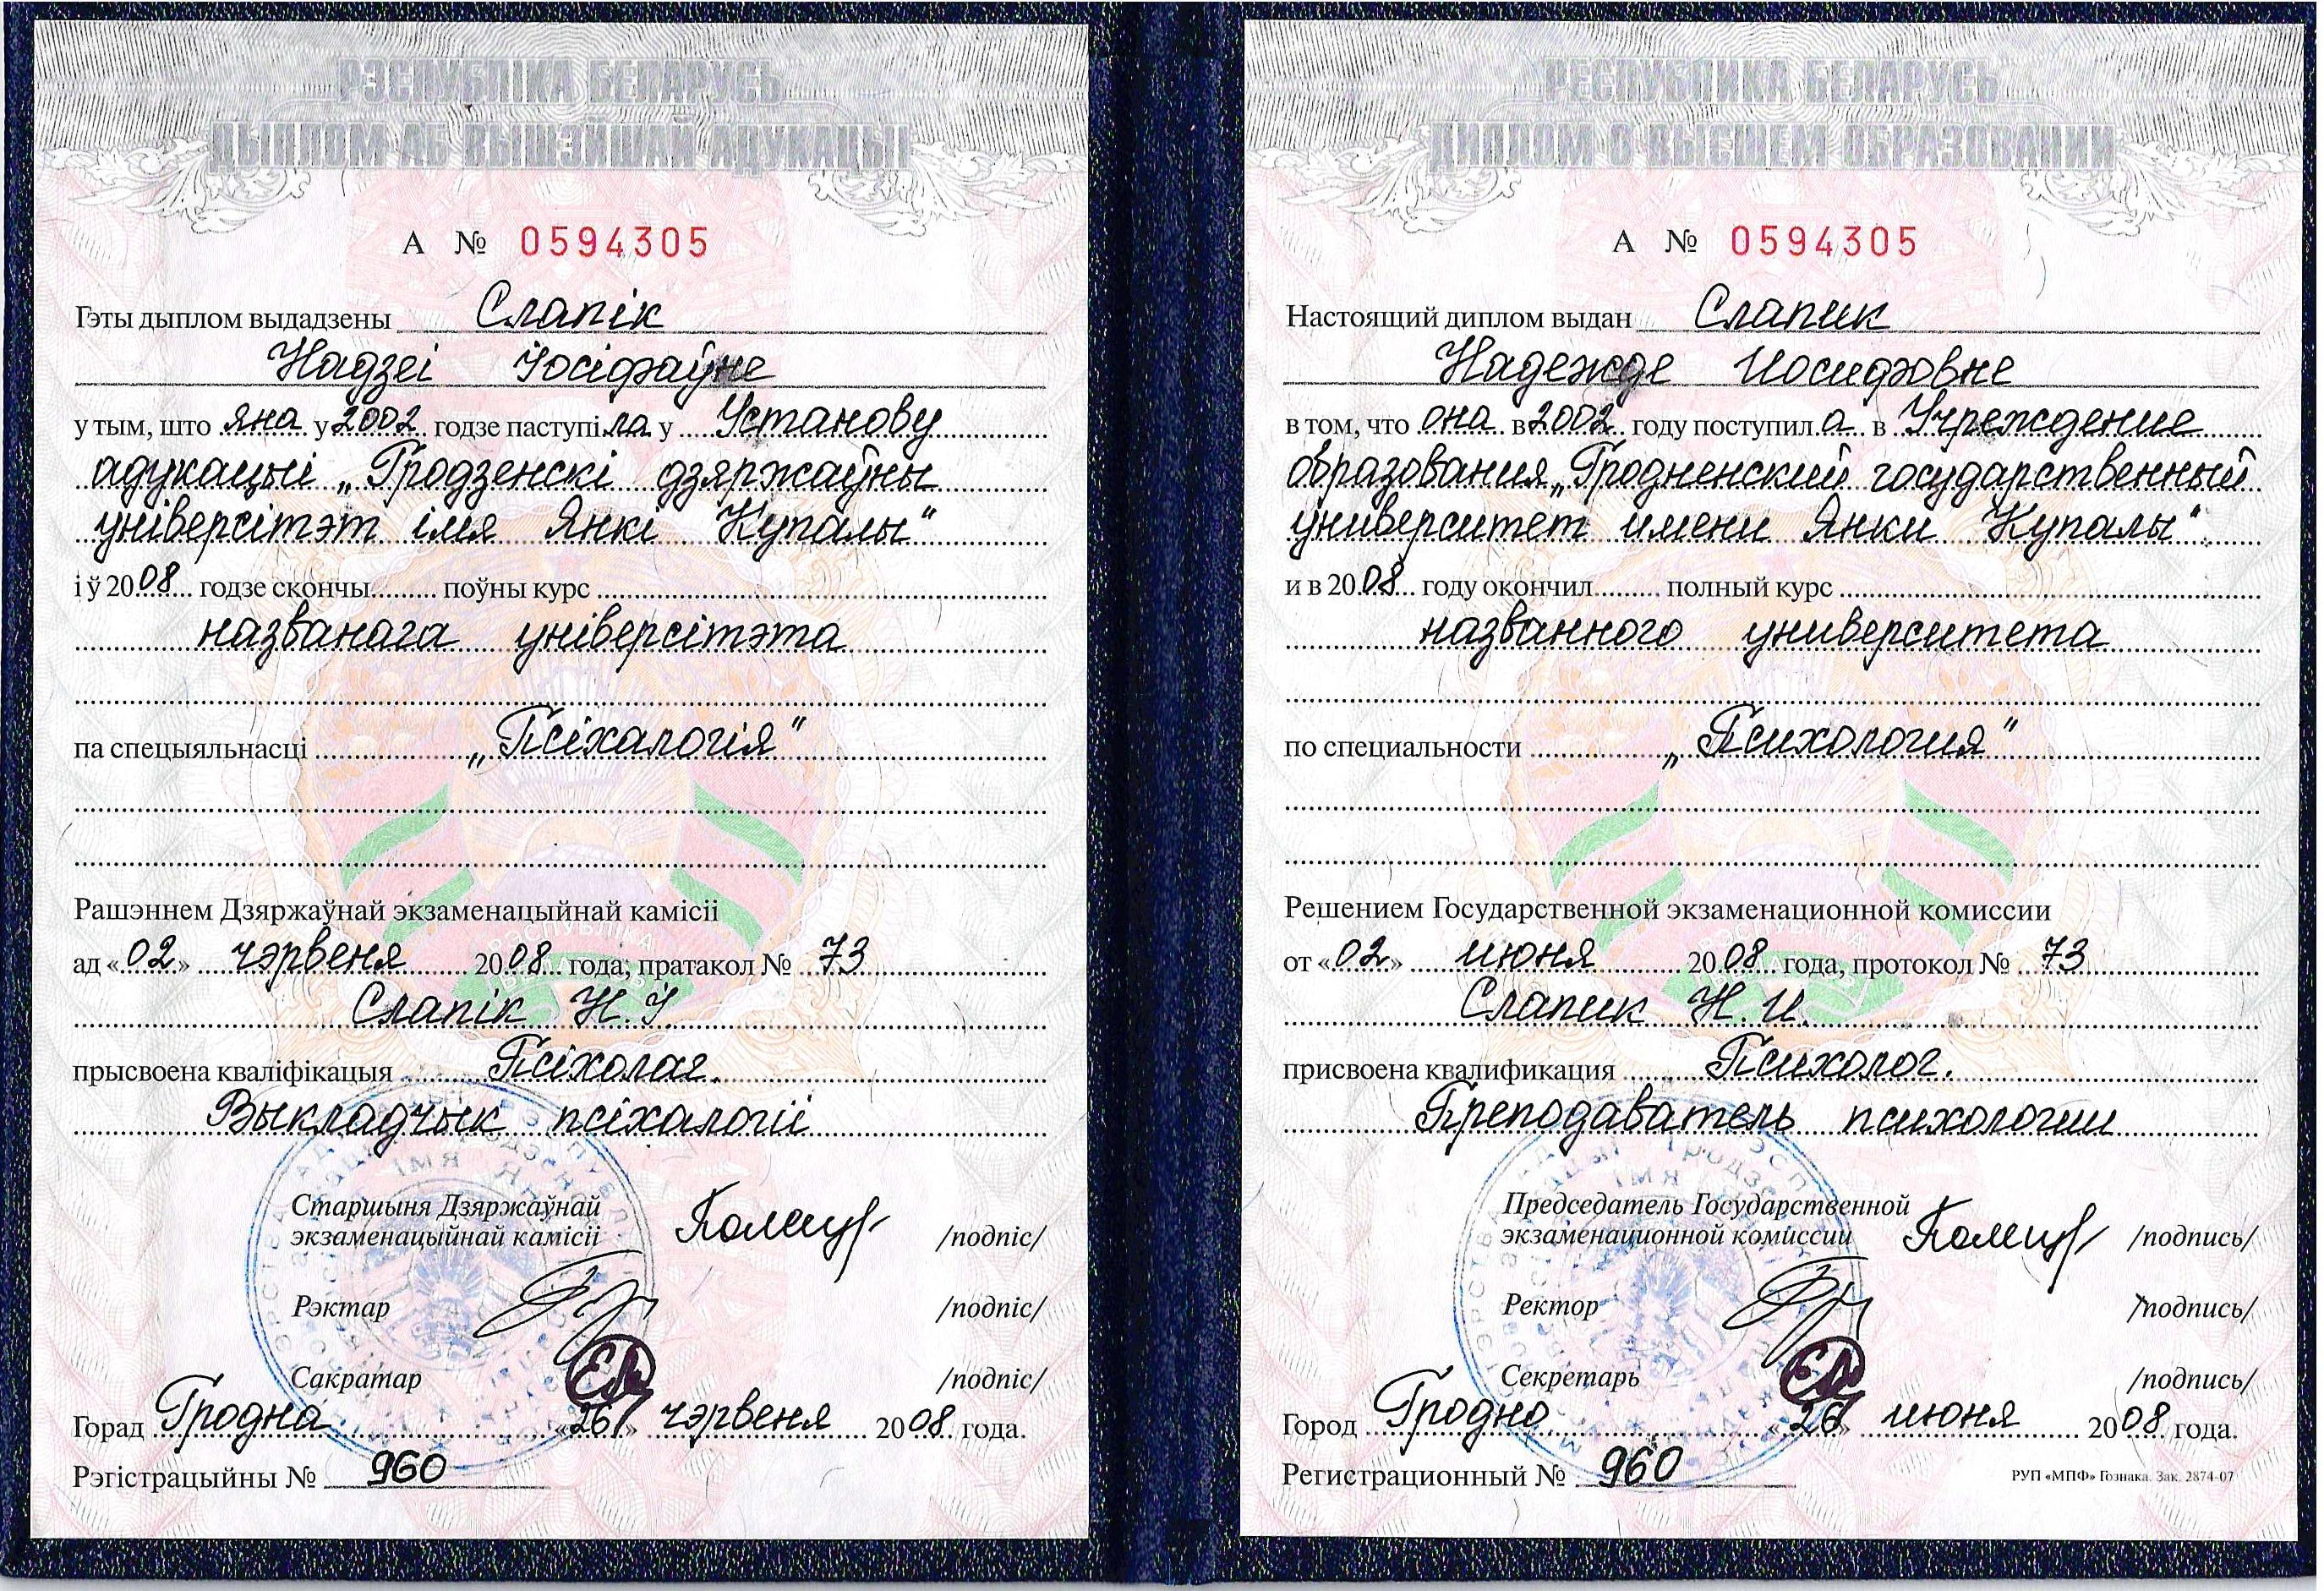 РЭСПУБЛІКА БЕЛАРУСЬ
ДЫПЛОМ АБ ВЫШЭЙШАЙ АДУКАЦЫІ
А № 0594305
Гэты дыплом выдадзены Слапік
Надзеі Іосіфаўне
у тым, што яна у 2002 годзе паступіла у Установу
адукацыі „Гродзенскі дзяржаўны
універсітэт імя Янкі Купалы“
і ў 2008 годзе скончы поўны курс
названага універсітэта
па спецыяльнасці „Псіхалогія“
Рашэннем Дзяржаўнай экзаменацыйнай камісіі
ад «02» чэрвеня 2008 года, пратакол № 73
Слапік Н.І.
прысвоена кваліфікацыя Псіхолаг.
Выкладчык псіхалогіі
Старшыня Дзяржаўнай
экзаменацыйнай камісіі /подпіс/
Рэктар /подпіс/
Сакратар /подпіс/
Горад Гродна «26» чэрвеня 2008 года.
Рэгістрацыйны № 960
РЕСПУБЛИКА БЕЛАРУСЬ
ДИПЛОМ О ВЫСШЕМ ОБРАЗОВАНИИ
А № 0594305
Настоящий диплом выдан Слапик
Надежде Иосифовне
в том, что она в 2002 году поступила в Учреждение
образования „Гродненский государственный
университет имени Янки Купалы“
и в 2008 году окончил полный курс
названного университета
по специальности „Психология“
Решением Государственной экзаменационной комиссии
от «02» июня 2008 года, протокол № 73
Слапик Н.И.
присвоена квалификация Психолог.
Преподаватель психологии
Председатель Государственной
экзаменационной комиссии /подпись/
Ректор /подпись/
Секретарь /подпись/
Город Гродно «26» июня 2008 года.
Регистрационный № 960
РУП «МПФ» Гознака. Зак. 2874-07